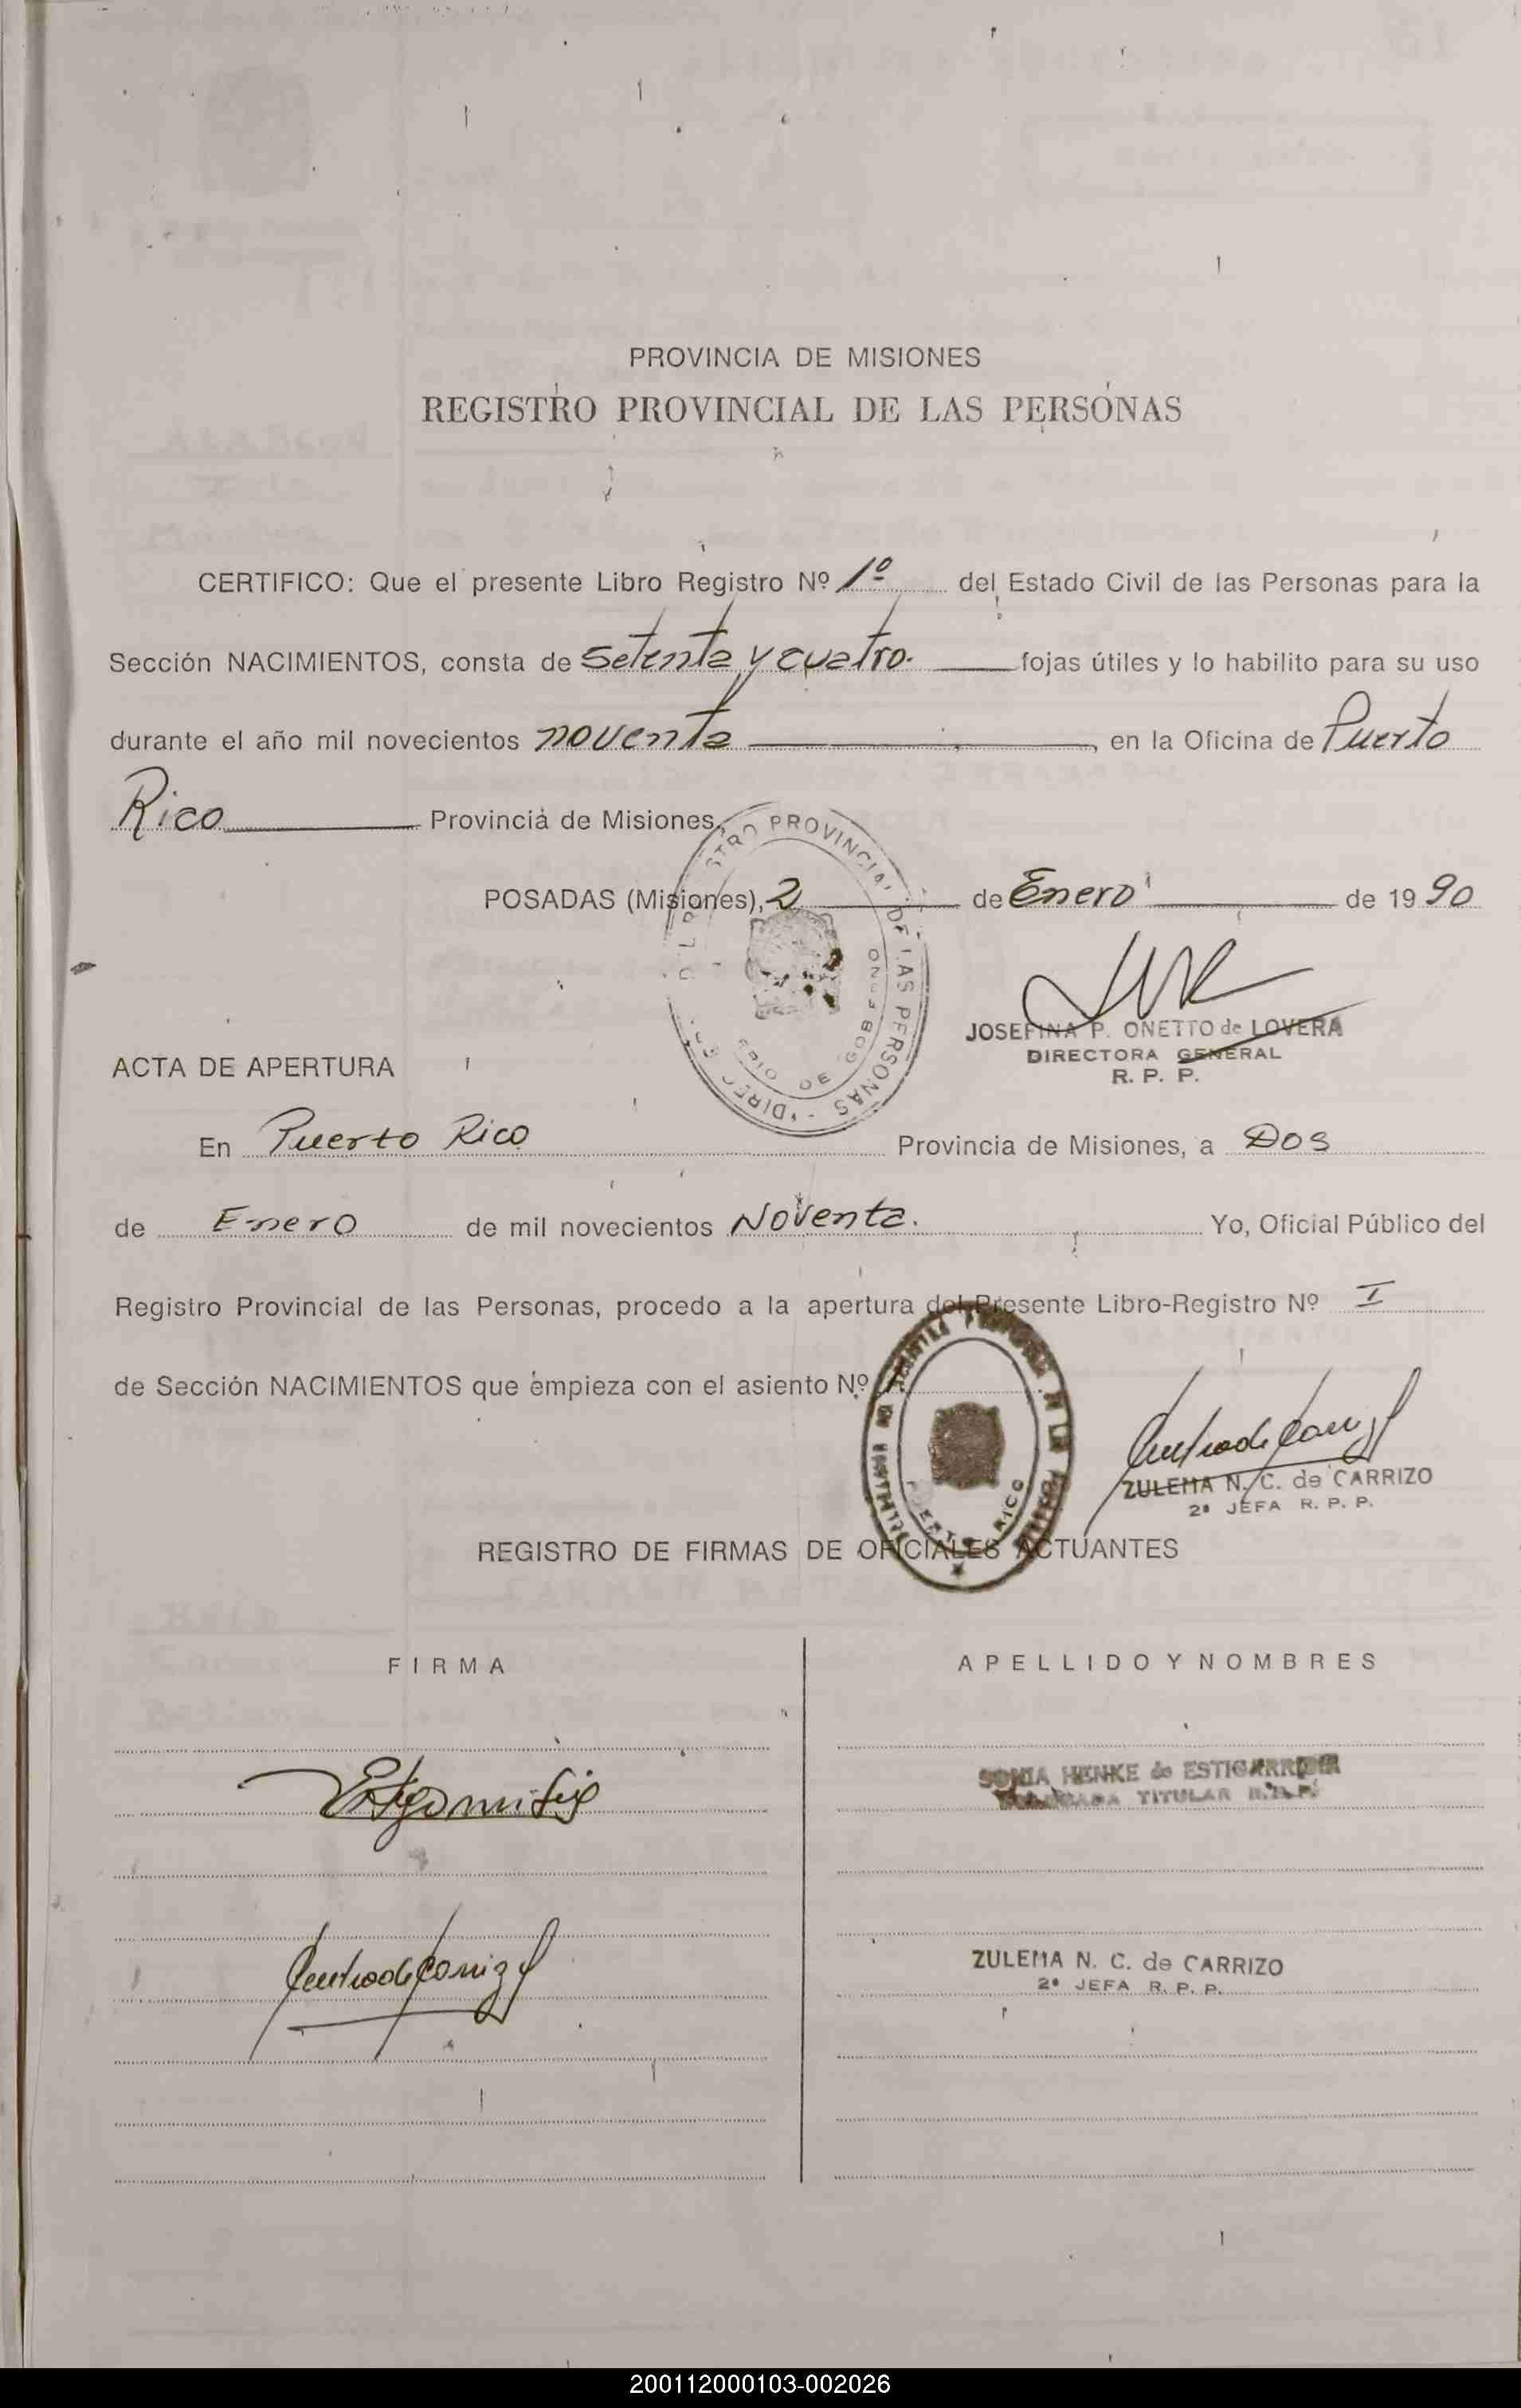 PROVINCIA DE MISIONES
REGISTRO PROVINCIAL DE LAS PERSONAS
CERTIFICO: Que el presente Libro Registro Nº 1º del Estado Civil de las Personas para la
Sección NACIMIENTOS, consta de setenta y cuatro. fojas útiles y lo habilito para su uso
durante el año mil novecientos noventa, en la Oficina de Puerto
Rico Provincia de Misiones.
POSADAS (Misiones), 2 de Enero de 1990
JOSEFINA P. ONETTO de LOVERA
DIRECTORA GENERAL
R. P. P.
ACTA DE APERTURA
En Puerto Rico Provincia de Misiones, a Dos
de Enero de mil novecientos Noventa. Yo, Oficial Público del
Registro Provincial de las Personas, procedo a la apertura del Presente Libro-Registro Nº I
de Sección NACIMIENTOS que empieza con el asiento Nº
PUERTO RICO
ZULEMA N. C. de CARRIZO
2ª JEFA R. P. P.
REGISTRO DE FIRMAS DE OFICIALES ACTUANTES
FIRMA APELLIDO Y NOMBRES
SONIA HENKE de ESTIGARRIBIA
TITULAR R.P.P.
ZULEMA N. C. de CARRIZO
2ª JEFA R. P. P.
200112000103-002026